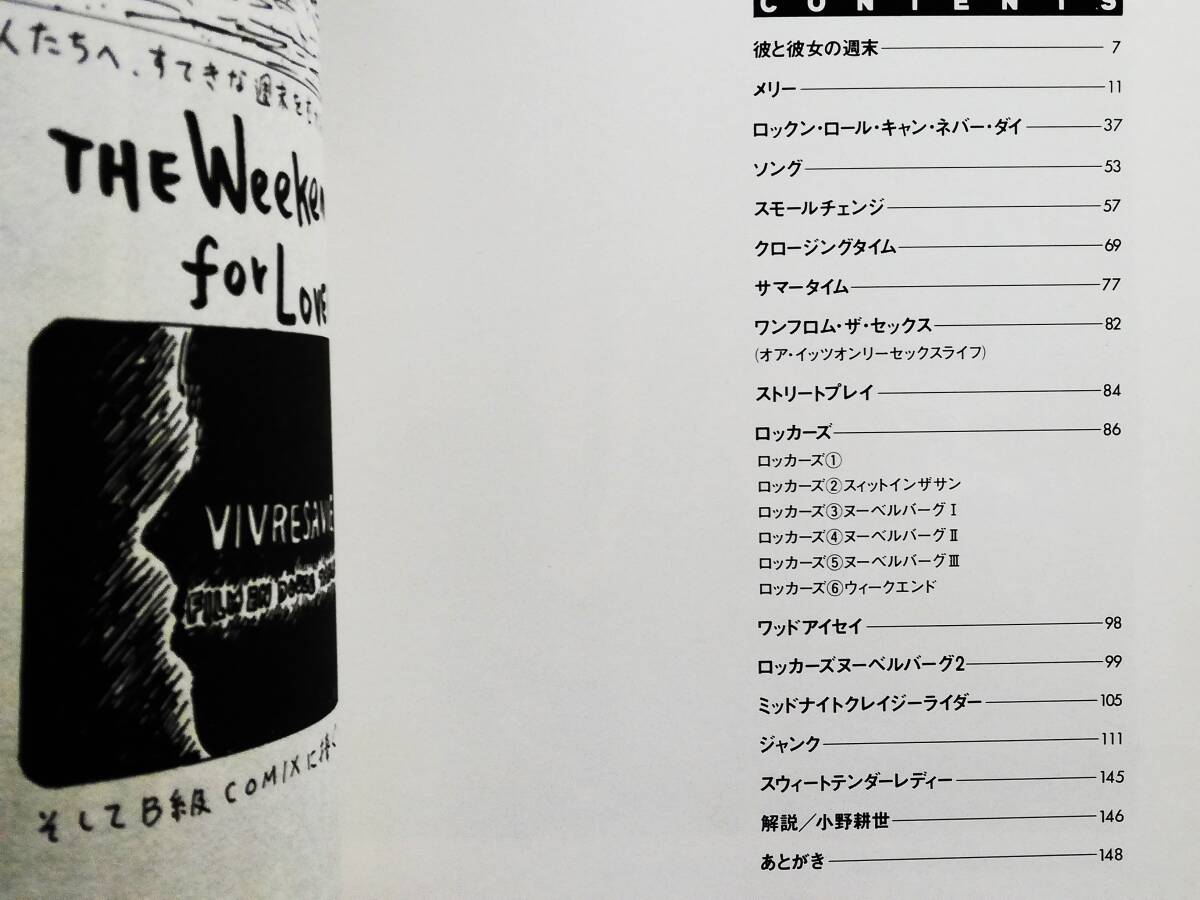 人たちへ、すてきな週末を
THE Weeken
for LOVE
VIVRE SA VIE
FILM EN DOUZE
そしてB級COMIXに捧ぐ
CONTENTS
彼と彼女の週末 7
メリー 11
ロックン・ロール・キャン・ネバー・ダイ 37
ソング 53
スモールチェンジ 57
クロージングタイム 69
サマータイム 77
ワンフロム・ザ・セックス 82
(オア・イッツオンリーセックスライフ)
ストリートプレイ 84
ロッカーズ 86
ロッカーズ①
ロッカーズ②スィットインザサン
ロッカーズ③ヌーベルバーグⅠ
ロッカーズ④ヌーベルバーグⅡ
ロッカーズ⑤ヌーベルバーグⅢ
ロッカーズ⑥ウィークエンド
ワッドアイセイ 98
ロッカーズヌーベルバーグ2 99
ミッドナイトクレイジーライダー 105
ジャンク 111
スウィートテンダーレディー 145
解説/小野耕世 146
あとがき 148